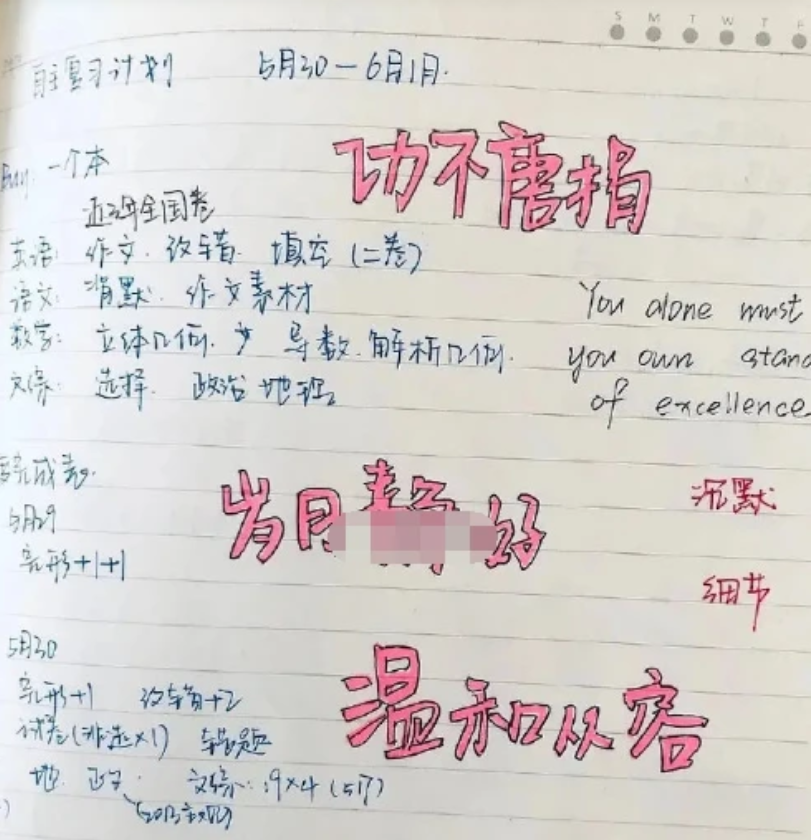 S M T W T F
自主复习计划 5月30－6月1日.
功不唐捐
Buy: 一个本
近三年全国卷
英语: 作文. 改错. 填空 (二卷)
语文: 背默. 作文素材
You alone must
数学: 立体几何. 导数. 解析几何.
you own stand
文综: 选择. 政治 地理
of excellence
完成表.
岁月静好
沉默
5月29
完形+1+1
细节
5月30
温和从容
完形+1 改错+2
试卷(非选×1) 错题
地. 政 文综: